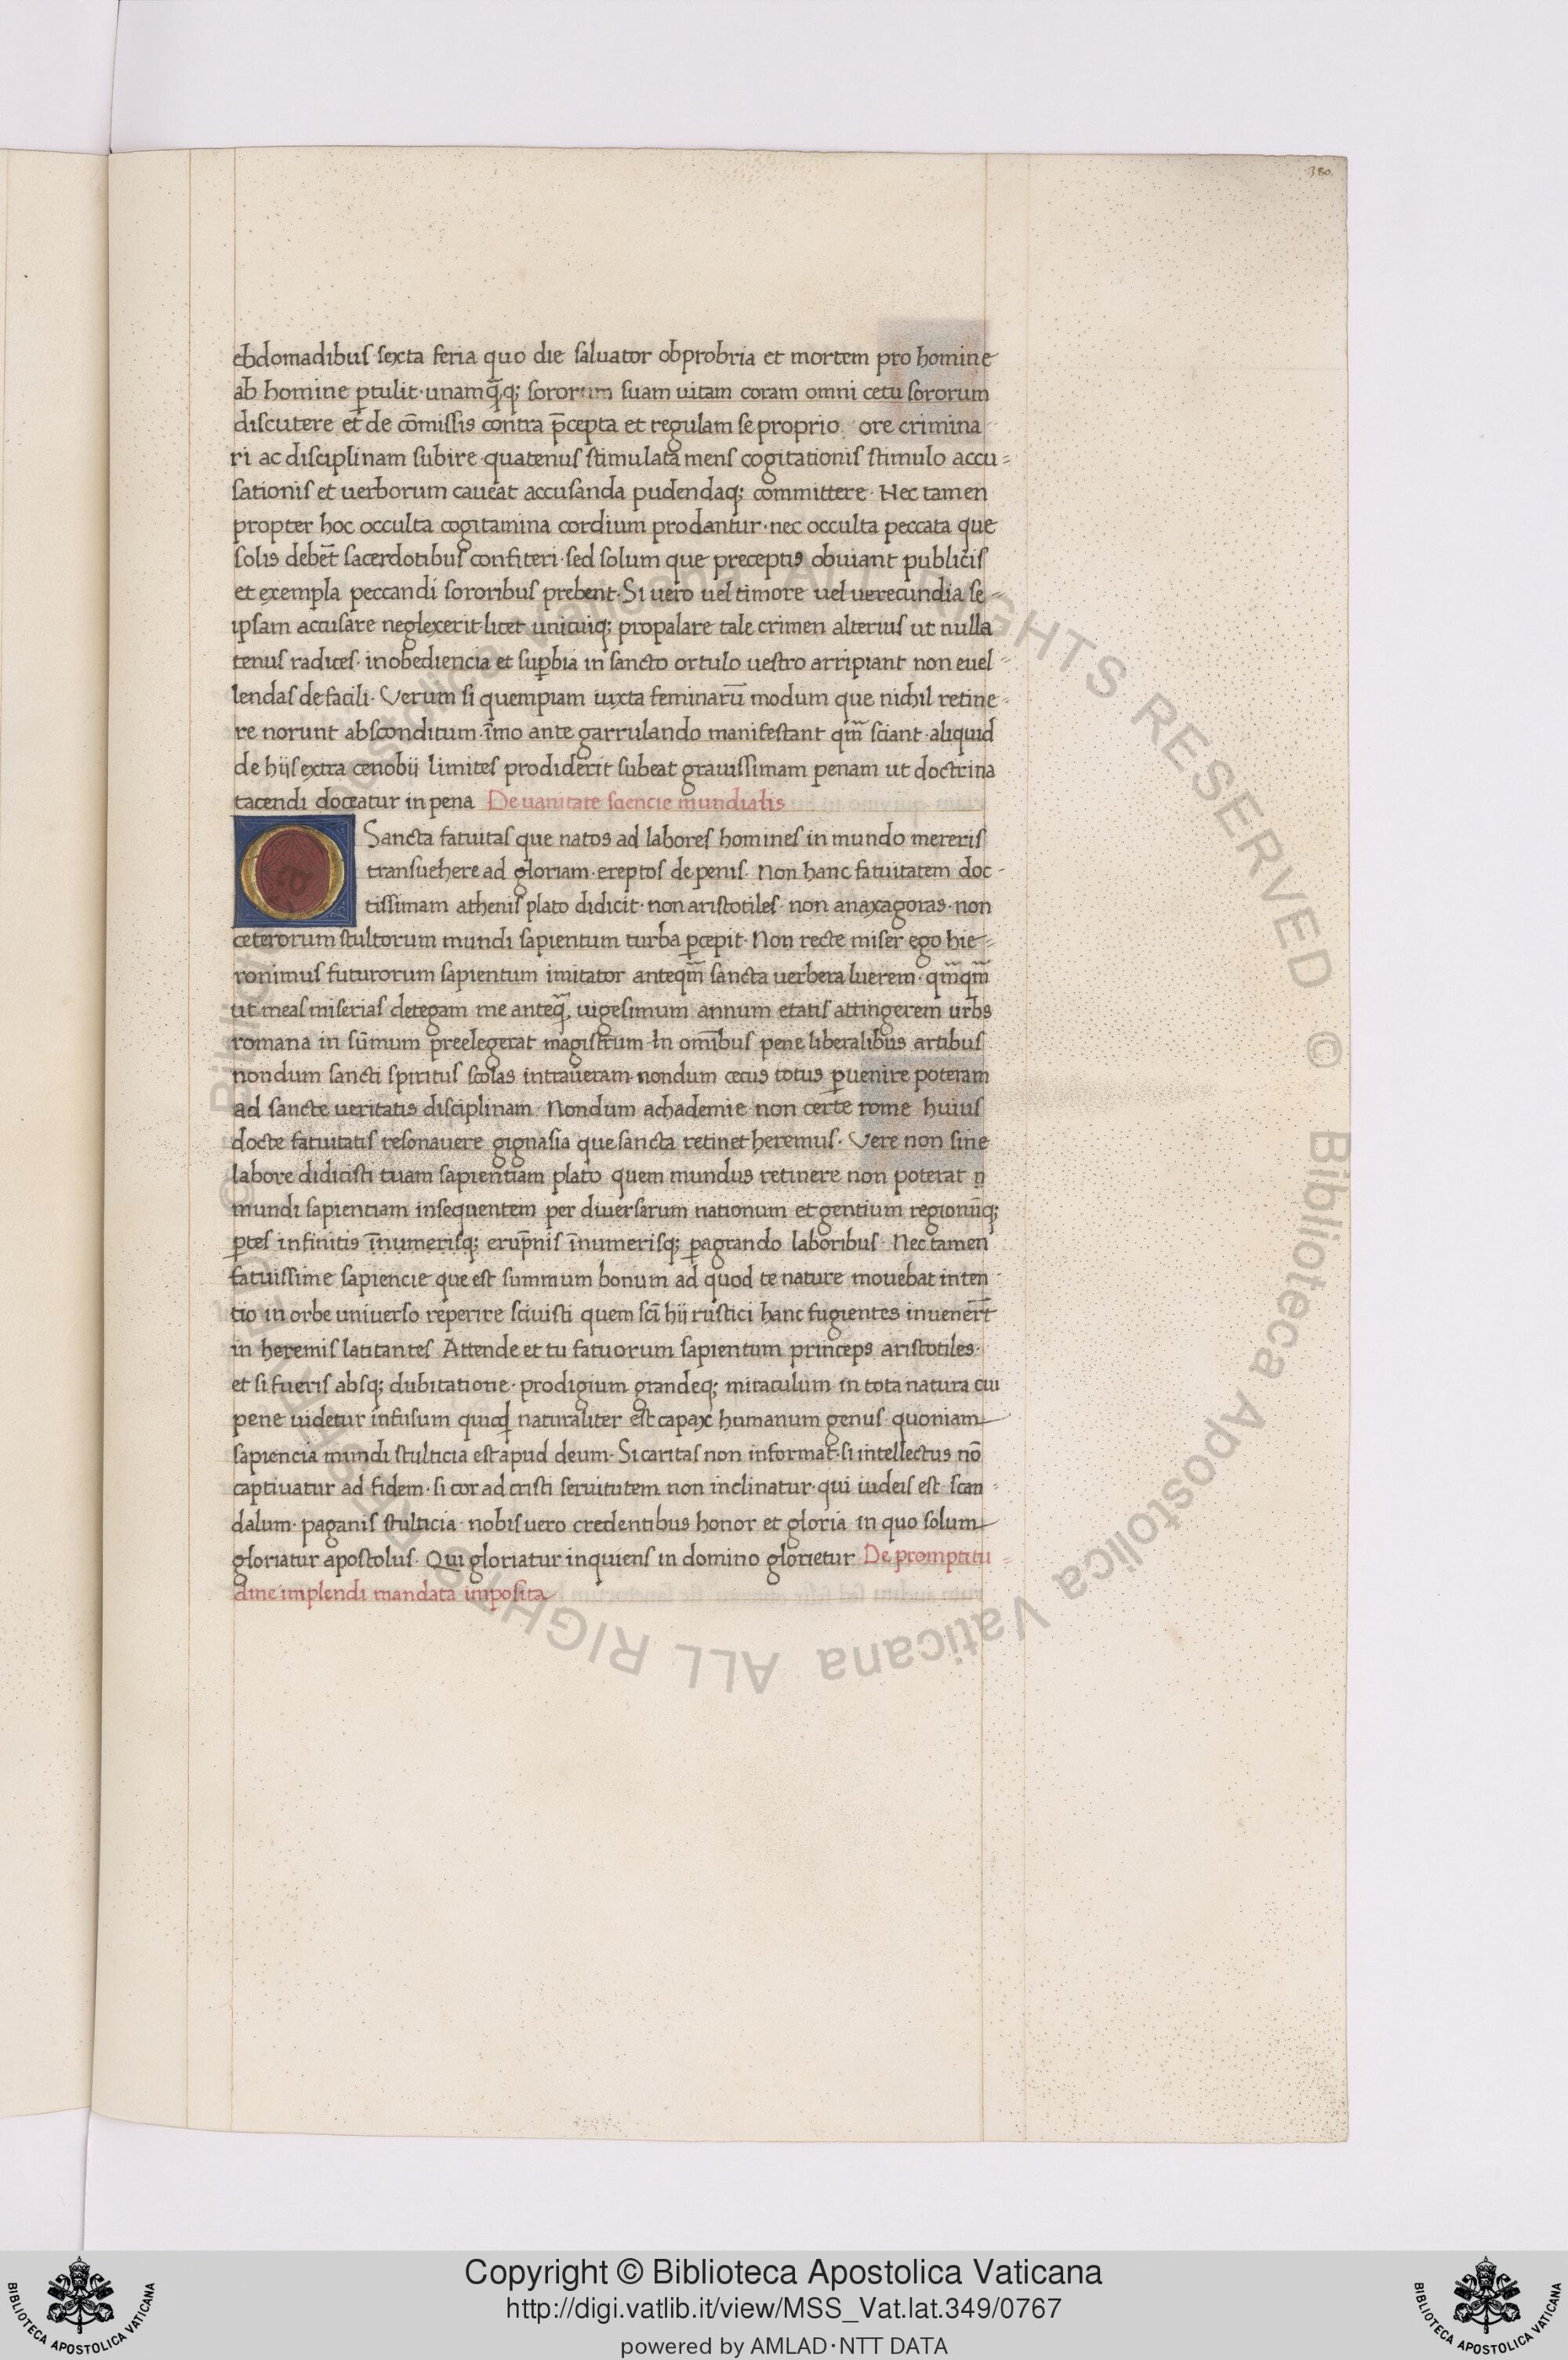 380
ebdomadibus sexta feria quo die saluator obprobria et mortem pro homine
ab homine ꝑtulit· unamq̃q; sororum suam uitam coram omni cetu sororum
discutere et de cõmissis contra p̃cepta et regulam se proprio ore crimina
ri ac disciplinam subire quatenus stimulata mens cogitationis stimulo accu=
sationis et uerborum caueat accusanda pudendaq; committere· Nec tamen
propter hoc occulta cogitamina cordium prodantur· nec occulta peccata que
solis debet̃ sacerdotibus confiteri· sed solum que preceptis obuiant publicis
et exempla peccandi sororibus prebent· Si uero uel timore uel uerecundia se=
ipsam accusare neglexerit· licet unicuiq; propalare tale crimen alterius ut nulla
tenus radices· inobediencia et suꝑbia in sancto ortulo uestro arripiant non euel=
lendas de facili· Verum si quempiam iuxta feminarũ modum que nichil retine=
re norunt absconditum· ĩmo ante garrulando manifestant qm̃ sciant· aliquid
de hijs extra cenobij limites prodiderit subeat grauissimam penam ut doctrina
tacendi doceatur in pena De uanitate sciencie mundialis
O Sancta fatuitas que natos ad labores homines in mundo mereris
transuehere ad gloriam· ereptos de penis· Non hanc fatuitatem doc-
tissimam athenis plato didicit· non aristotiles· non anaxagoras· non
ceterorum stultorum mundi sapientum turba ꝑcepit· Non recte miser ego hie=
ronimus futurorum sapientum imitator anteqm̃ sancta uerbera luerem· qm̃qm̃
ut meas miserias detegam me anteq̃ uigesimum annum etatis attingerem urbs
romana in sũmum preelegerat magistrum· In om̃ibus pene liberalibus artibus
nondum sancti spiritus scolas intraueram· nondum cecus totus ꝑuenire poteram
ad sancte ueritatis disciplinam· Nondum achademie non certe rome huius
docte fatuitatis resonauere gignasia que sancta retinet heremus· Vere non sine
labore didicisti tuam sapientiam plato quem mundus retinere non poterat
mundi sapientiam insequentem per diuersarum nationum et gentium regionũq;
ꝑtes infinitis ĩnumerisq; erup̃nis ĩnumerisq; ꝑagrando laboribus· Nec tamen
fatuissime sapiencie que est summum bonum ad quod te nature mouebat inten-
tio in orbe uniuerso reperire sciuisti quem sc̃i hij rustici hanc fugientes inuener̃t
in heremis latitantes· Attende et tu fatuorum sapientum princeps aristotiles·
et si fueris absq; dubitatione· prodigium grandeq; miraculum in tota natura cui
pene uidetur infusum quicq̃d naturaliter est capax humanum genus quoniam
sapiencia mundi stulticia est apud deum· Si caritas non informat· si intellectus nõ
captiuatur ad fidem· si cor ad cristi seruitutem non inclinatur· qui iudeis est scan=
dalum· paganis stulticia· nobis uero credentibus honor et gloria in quo solum
gloriatur apostolus· Qui gloriatur inquiens in domino glorietur De promptitu=
dine implendi mandata imposita
© Biblioteca Apostolica Vaticana ALL RIGHTS RESERVED © Biblioteca Apostolica Vaticana ALL RIGHTS RESERVED
Copyright © Biblioteca Apostolica Vaticana
http://digi.vatlib.it/view/MSS_Vat.lat.349/0767
powered by AMLAD·NTT DATA
BIBLIOTECA APOSTOLICA VATICANA
BIBLIOTECA APOSTOLICA VATICANA